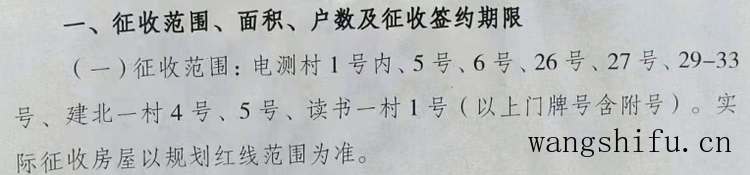 一、征收范围、面积、户数及征收签约期限
（一）征收范围：电测村1号内、5号、6号、26号、27号、29-33
号、建北一村4号、5号、读书一村1号（以上门牌号含附号）。实
际征收房屋以规划红线范围为准。
wangshifu.cn